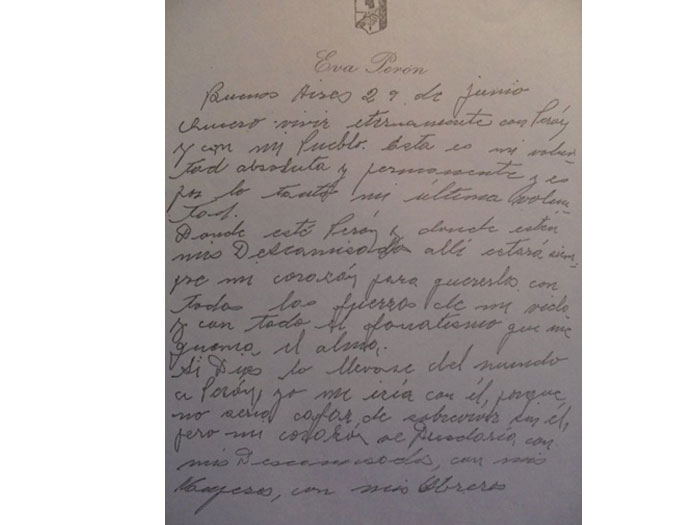 Eva Perón
Buenos Aires 29 de junio
Quiero vivir eternamente con Perón
y con mi Pueblo. Esta es mi volun
tad absoluta y permanente y es
por lo tanto mi última volun
tad.
Donde esté Perón y donde estén
mis Descamisados allí estará siem
pre mi corazón para quererlos con
todas las fuerzas de mi vida
y con todo el fanatismo que me
quema el alma.
Si Dios lo llevase del mundo
a Perón, yo me iría con él, porque
no sería capaz de sobrevivir sin él,
pero mi corazón se quedaría con
mis Descamisados, con mis
Mujeres, con mis Obreros